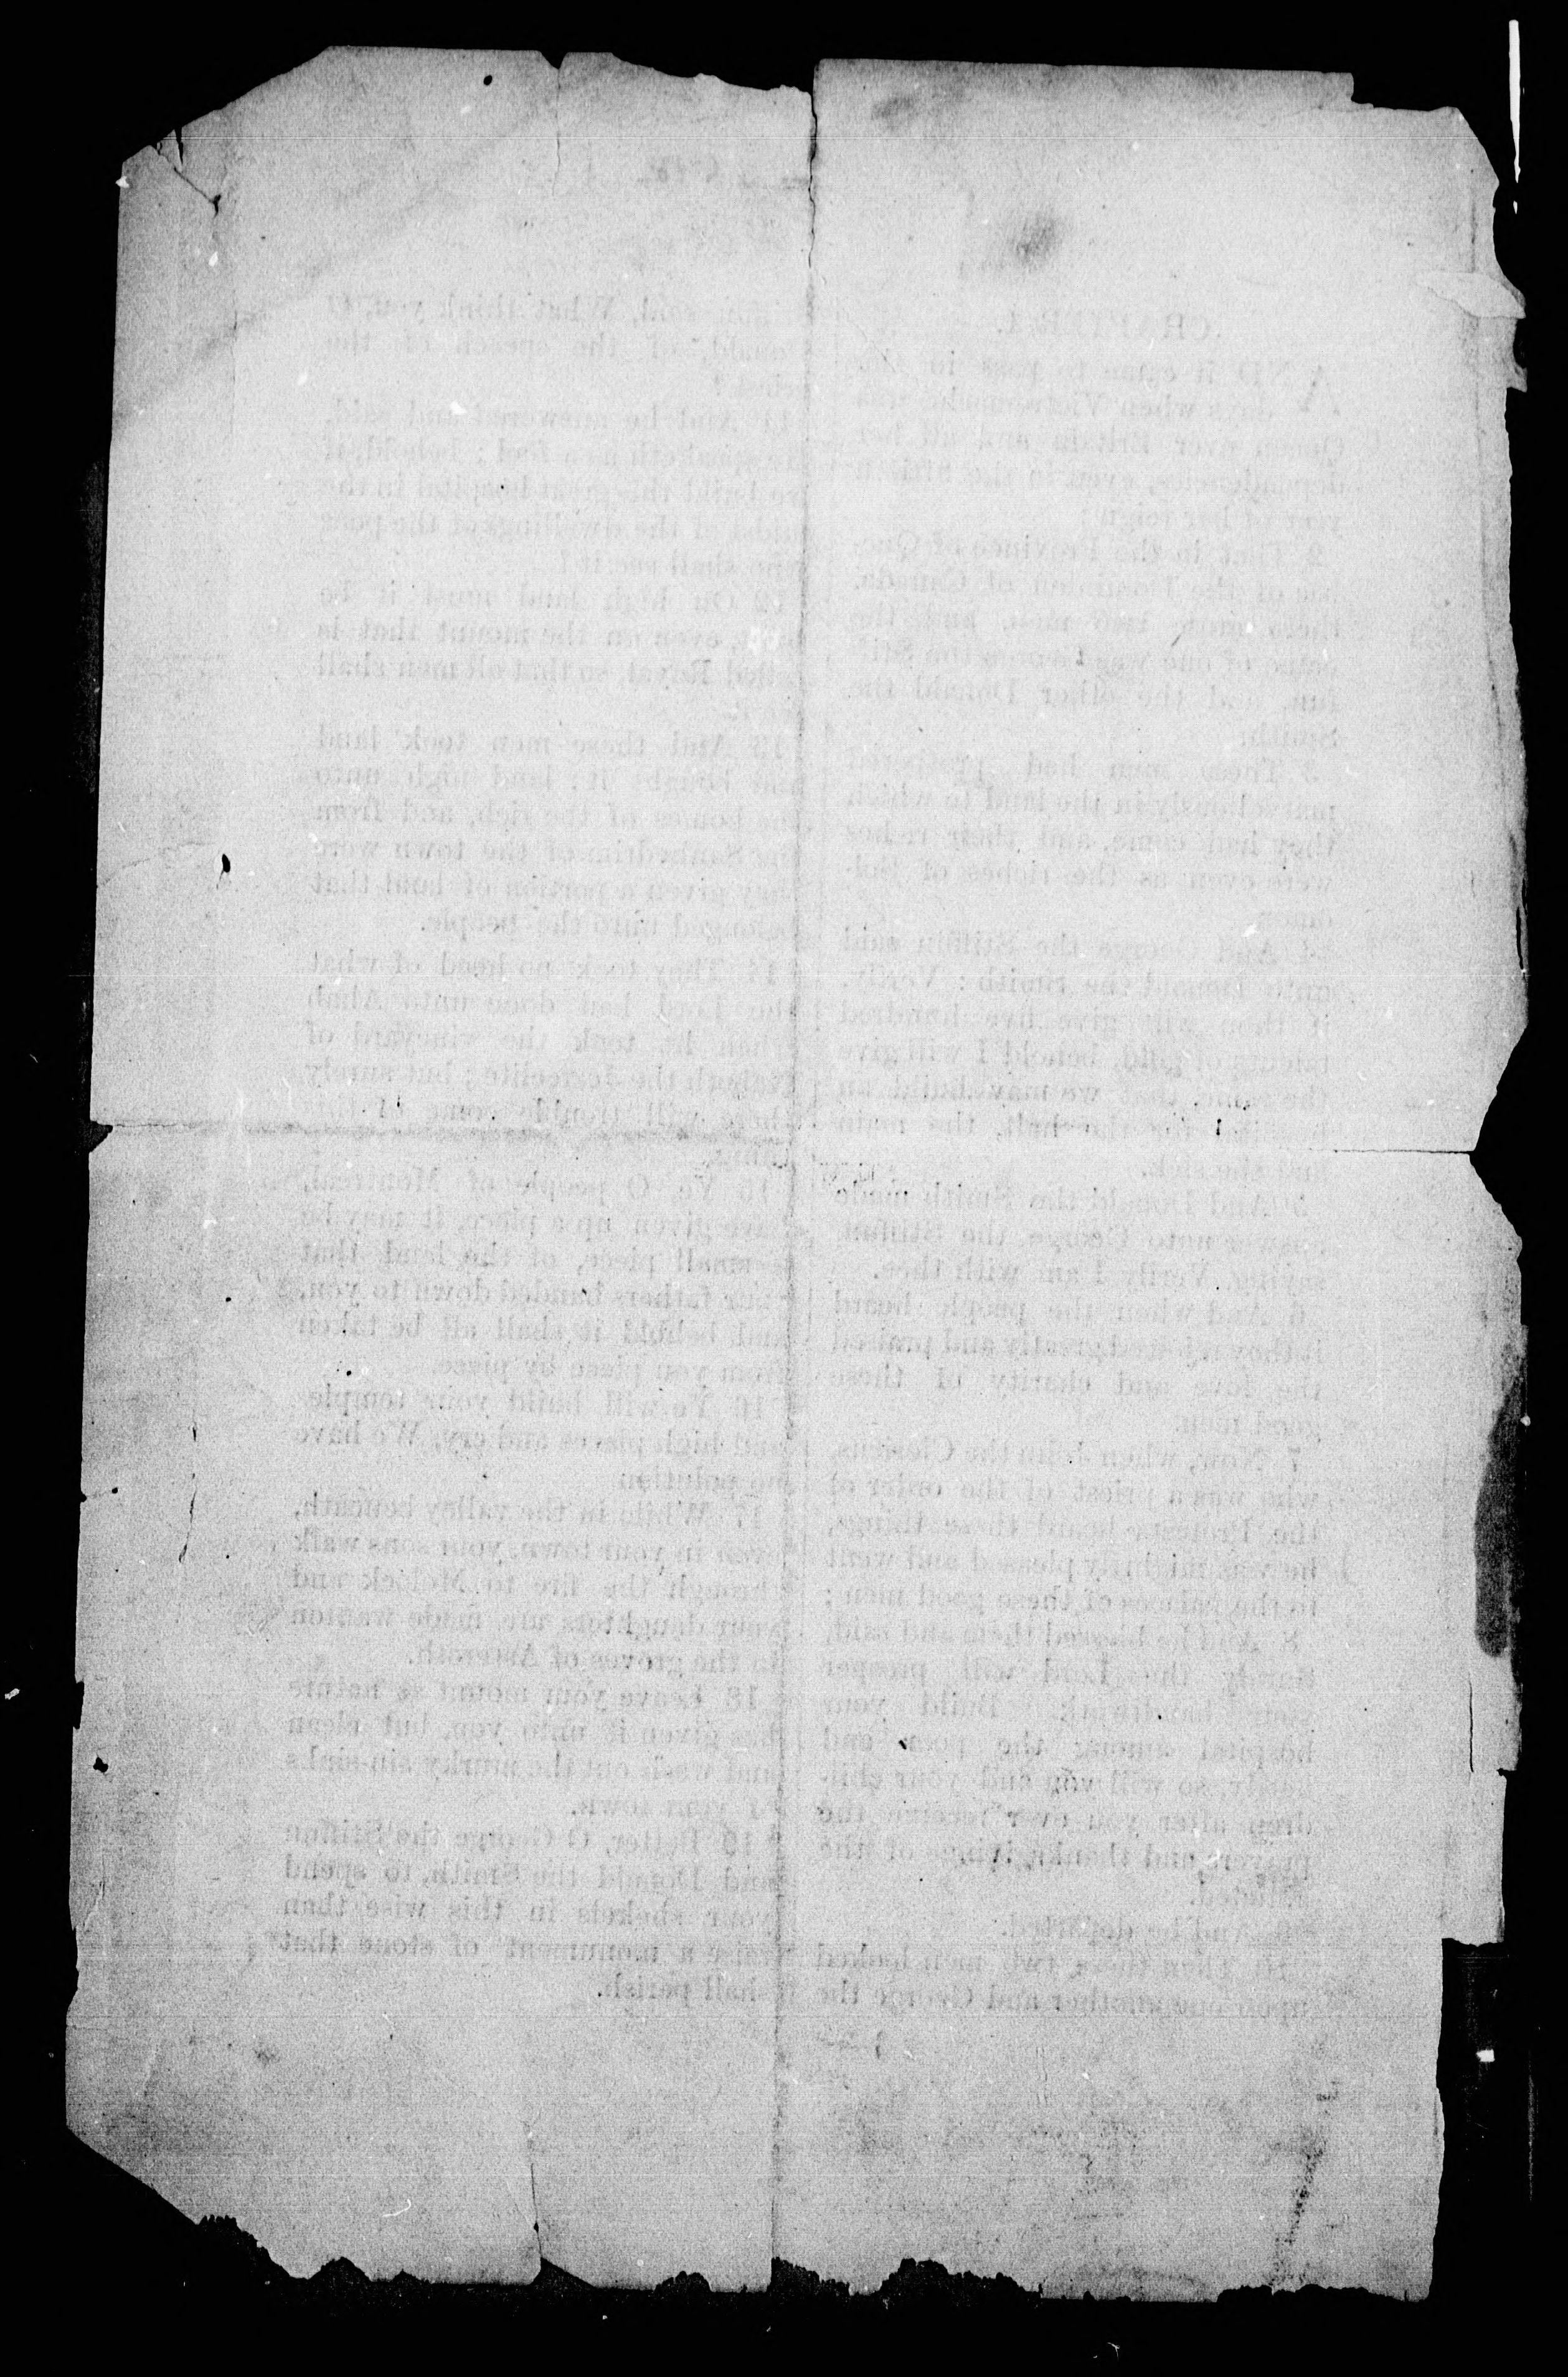 CHAPTER I.
AND it came to pass in the
days when Victoria was
Queen over Britain and all her
dependencies, even in the
year of her reign;
2 That in the Province of Que-
bec of the Dominion of Canada,
there were two men, and the
name of one was George the Stif-
fun, and the other Donald the
Smith.
3 These men had prospered
marvellously in the land to which
they had come, and their riches
were even as the riches of Sol-
omon.
4 And George the Stiffun said
unto Donald the Smith: Verily,
if thou wilt give five hundred
talents of gold, behold I will give
the same, that we may build an
hospital for the halt, the maim
and the sick.
5 And Donald the Smith made
answer unto George the Stiffun,
saying, Verily I am with thee.
6 And when the people heard
it they rejoiced greatly and praised
the love and charity of these
good men.
7 Now, when John the Clericus,
who was a priest of the order of
the Protesta heard these things,
he was mightily pleased and went
to the palaces of these good men;
8 And he blessed them and said,
Surely the Lord will prosper
your handiwork. Build your
hospital among the poor and
needy, so will you and your chil-
dren after you ever receive the
prayers and thanksgivings of the
afflicted.
9 And he departed.
10 Then these two men looked
upon one another and George the
Stiffun said, What think you, O
Donald, of the speech of the
priest?
11 And he answered and said,
He speaketh as a fool; behold, if
we build this great hospital in the
midst of the dwellings of the poor
who shall see it!
12 On high land must it be
built, even on the mount that is
called Royal, so that all men shall
see it.
13 And these men took land
and bought it; land nigh unto
the homes of the rich, and from
the Sanhedrim of the town were
they given a portion of land that
belonged unto the people.
14 They took no heed of what
the Lord had done unto Ahab
when he took the vineyard of
Naboth the Jezreelite; but surely
there will trouble come of this
thing.
15 Ye, O people of Montreal,
have given up a piece, it may be
a small piece, of the land that
your fathers handed down to you,
and behold it shall all be taken
from you piece by piece.
16 Ye will build your temple
and high places and cry, We have
no polution
17 While in the valley beneath,
even in your town, your sons walk
through the fire to Moloch and
your daughters are made wanton
in the groves of Asteroth.
18 Leave your mount as nature
has given it unto you, but clean
and wash out the murky sin-sinks
of your town.
19 Better, O George the Stiffun
and Donald the Smith, to spend
your shekels in this wise than
raise a monument of stone that
shall perish.